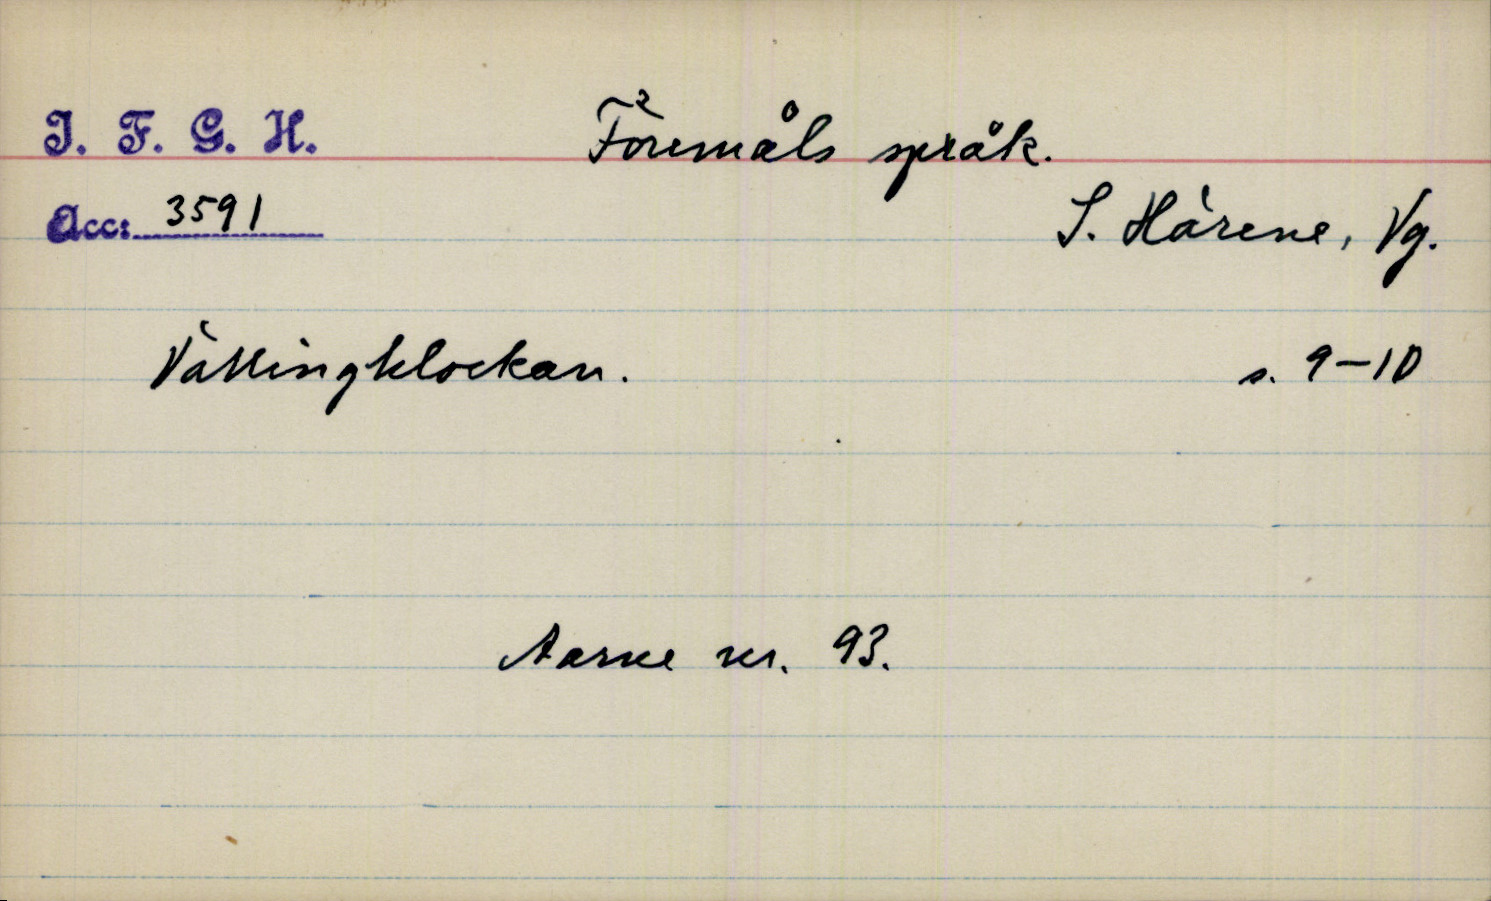 I. F. G. H. Föremåls språk.
Acc: 3591 S. Härene, Vg.
Vällingklockan. s. 9-10
Aarne nr. 93.